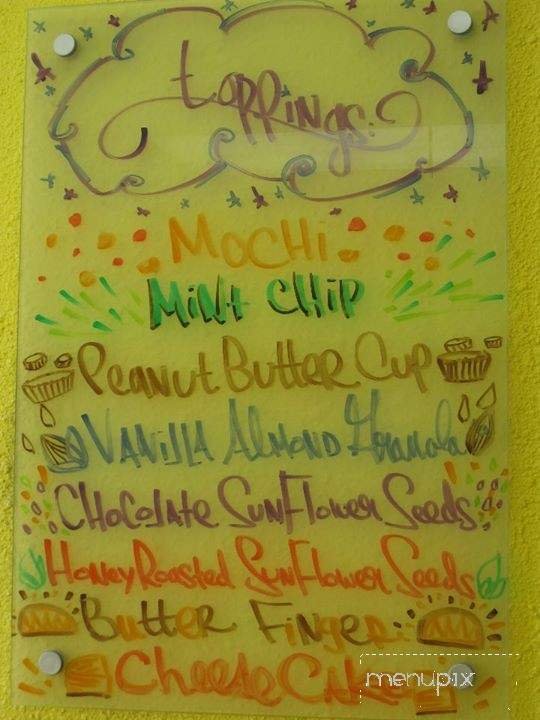 toppings:
Mochi
Mint Chip
Peanut Butter Cup
Vanilla Almond Granola
Chocolate Sunflower Seeds
Honey Roasted Sunflower Seeds
Butter Finger
Cheese Cake
menupix